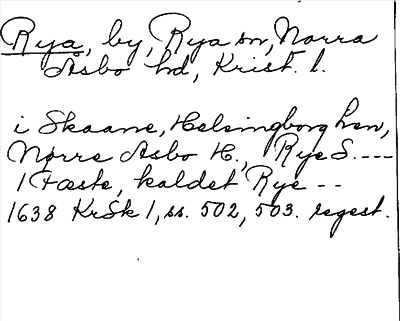 Rya, by, Rya sn, Norra
Åsbo hd, Krist. l.
i Skaane, Helsingborg hen,
Nørre Asbo H., Rye S. ----
1 Fæste, kaldet Rye --
1638 KrSk 1, ss. 502, 503. regest.